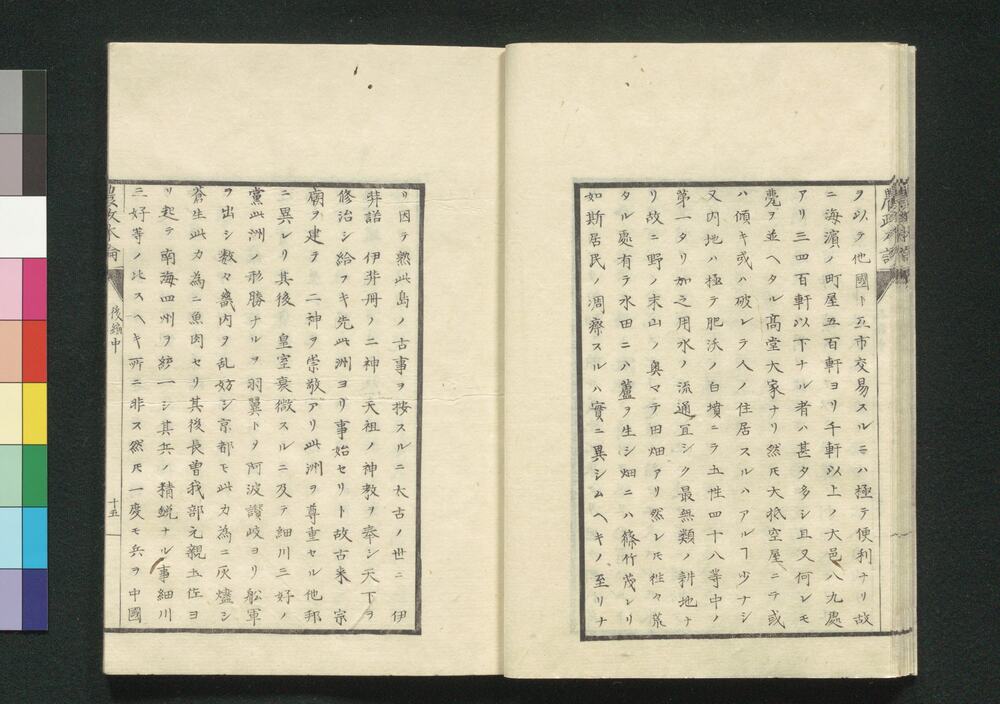 ヲ以テ他國ト互市交易スルニハ極テ便利ナリ故
ニ海濱ノ町屋五百軒ヨリ千軒以上ノ大邑八九處
アリ三四百軒以下ナル者ハ甚タ多シ且又何レモ
甍ヲ並ヘタル高堂大家ナリ然𪜈大抵空屋ニテ或
ハ傾キ或ハ破レテ人ノ住居スルハアルヿ少ナシ
又内地ハ極テ肥沃ノ白墳ニテ五性四十八等中ノ
第一タリ加之用水ノ流通宜シク最無類ノ耕地ナ
リ故ニ野ノ末山ノ奥マテ田畑アリ然レ𪜈徃々荒
タル處有テ水田ニハ蘆ヲ生シ畑ニハ篠竹茂レリ
如斯居民ノ凋瘵スルハ實ニ異シムヘキノ至リナ
リ因テ熟此島ノ古事ヲ按スルニ太古ノ世ニ 伊
弉諾 伊弉册ノ二神 天祖ノ神教ヲ奉シ天下ヲ
修治シ給フキ先此洲ヨリ事始セリト故古来 宗
廟ヲ建テ 二神ヲ崇敬アリ此洲ヲ尊重セル他邦
ニ異レリ其後 皇室衰微スルニ及テ細川三好ノ
黨此洲ノ形勝ナルヲ羽翼トタ阿波讃岐ヨリ舩軍
ヲ出シ数々畿内ヲ乱妨シ京都モ此カ為ニ灰燼シ
蒼生此カ為ニ魚肉セリ其後長曽我部元親土佐ヨ
リ起テ南海四州ヲ統一シ其兵ノ精鋭ナル事細川
三好等ノ比スヘキ所ニ非ス然𪜈一度モ兵ヲ中國
後編中
十五